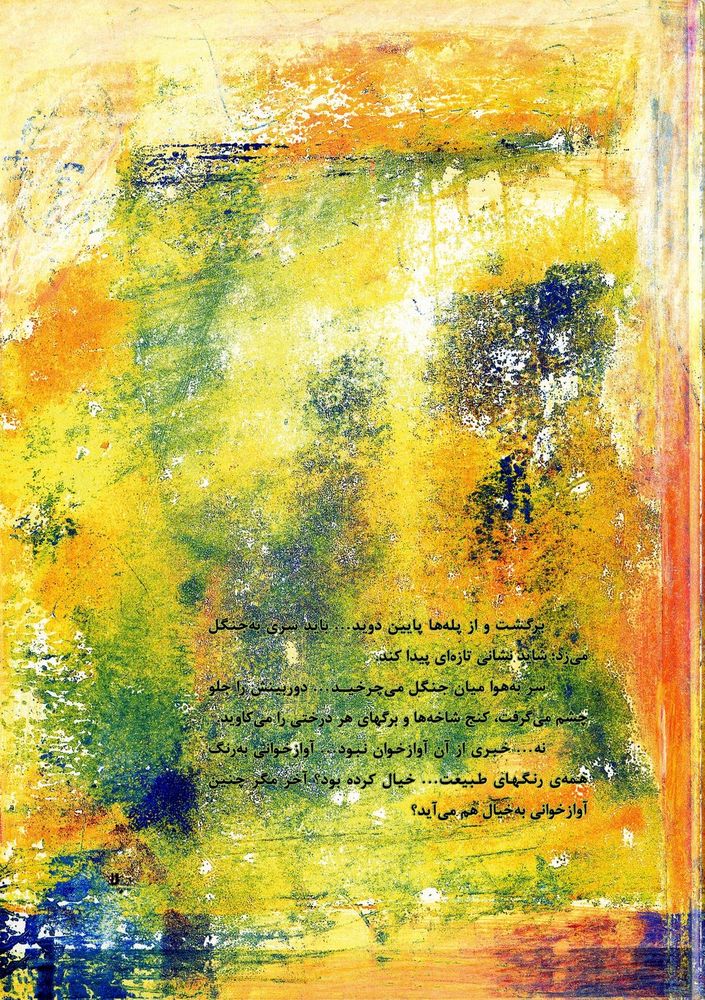 برگشت و از پله‌ها پایین دوید... باید سری به‌جنگل
می‌زد؛ شاید نشانی تازه‌ای پیدا کند.
سر به‌هوا میان جنگل می‌چرخید... دوربینش را جلو
چشم می‌گرفت، کنج شاخه‌ها و برگهای هر درختی را می‌کاوید.
نه... خبری از آن آوازخوان نبود... آوازخوانی به‌رنگ
همه‌ی رنگهای طبیعت... خیال کرده بود؟ آخر مگر چنین
آوازخوانی به‌خیال هم می‌آید؟